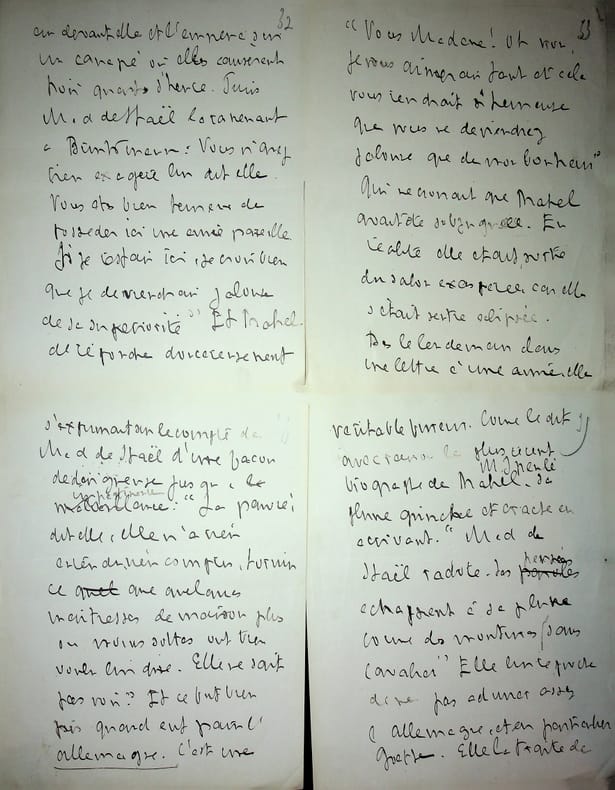 32
au devant elle et l'emmena sur
un canapé où elles causèrent
trois quarts d'heure. Puis
M. d de Staël la ramenant
à : Vous n'avez
rien exagéré lui dit elle.
Vous êtes bien de
posséder ici une amie pareille.
Si je restais ici, je crois bien
que je deviendrais jalouse
de sa supériorité" Et Rahel
de répondre doucereusement
33
"Vous Madame! Oh non,
je vous aimerais tant et cela
vous rendrait si heureuse
que vous ne deviendriez
jalouse que de mon bonheur"
Qui ne croirait que Rahel
avait été subjuguée. En
réalité elle était sortie
du salon exaspérée car elle
s'était sentie éclipsée.
Dès le lendemain dans
une lettre à une amie, elle
s'exprimait sur le compte de
M. d de Staël d'une façon
dédaigneuse jusqu'à la
malveillance: "La pauvre,
dit elle, elle n'a rien
entendu, rien compris,
ce que quelques
maîtresses de maison plus
ou moins sottes ont bien
voulu lui dire. Elle ne sait
pas voir" Et ce fut bien
pis quand eut paru l'
allemagne. C'est une
véritable fureur. Comme le dit
avec raison le plus récent
biographe de Rahel, M. Spenlé sa
plume grince et crache en
écrivant. "M. d de
Staël radote. Ses pensées
échappent à sa plume
comme des montures sans
cavalier" Elle lui reproche
de ne pas admirer assez
l'allemagne, et en particulier
Goethe. Elle la traite de